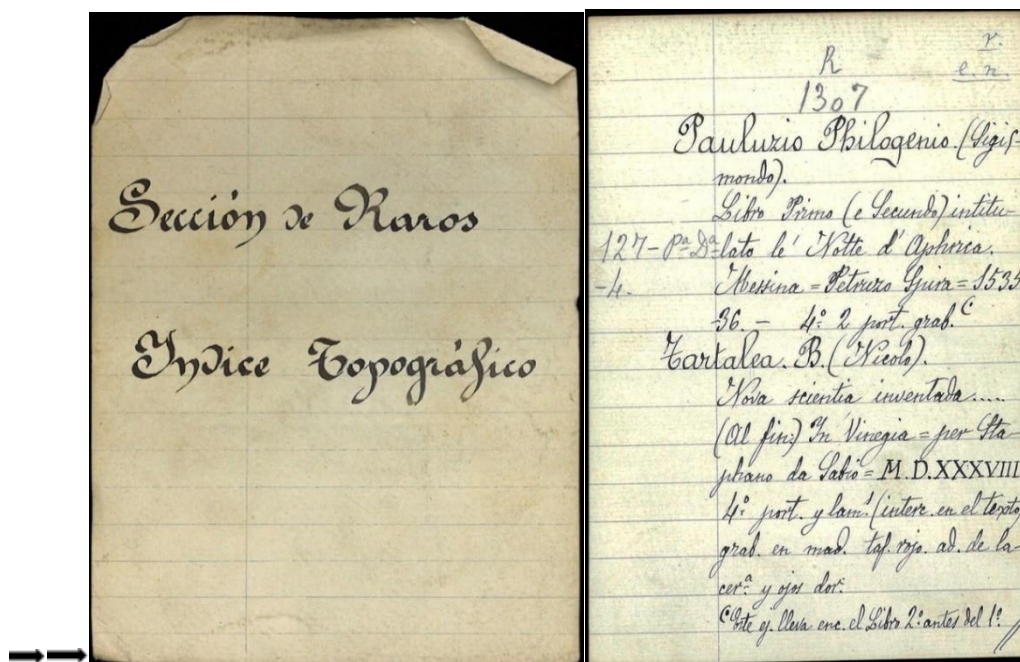 Sección de Raros
Indice Topográfico
R
1307
r.
e. n.
Pauluzio Philogenio. (Sigis-
mondo).
Libro Primo (e Secundo) intitu-
127-Pª Dª lato le' Notte d' Aphrica.
-4. Messina = Petruzo Spira = 1535
36. - 4º 2 port. grab. C
Tartalea. B. (Nicolo).
Nova scientia inventada.....
(Al fin:) In Vinegia = per Sta-
phano da Sabio = M.D.XXXVIII
4º port. y lams (interc. en el texto)
grab. en mad. taf. rojo. ad. de la-
cerª y ojos dor.
C Este ej. lleva enc. el Libro 2º antes del 1º.